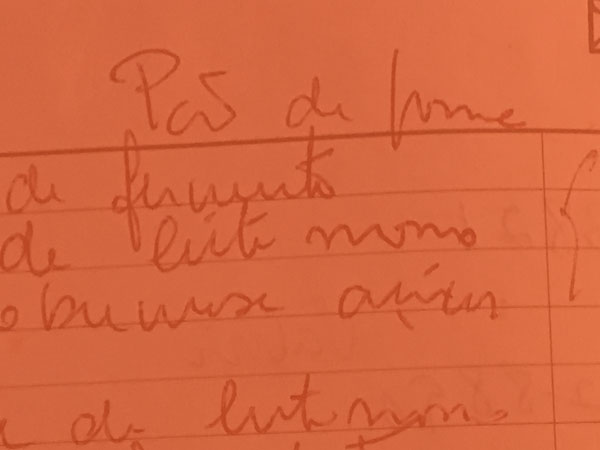 Pão de forma
de fermento
de leite morno
sobremesa açúcar
de leite morno